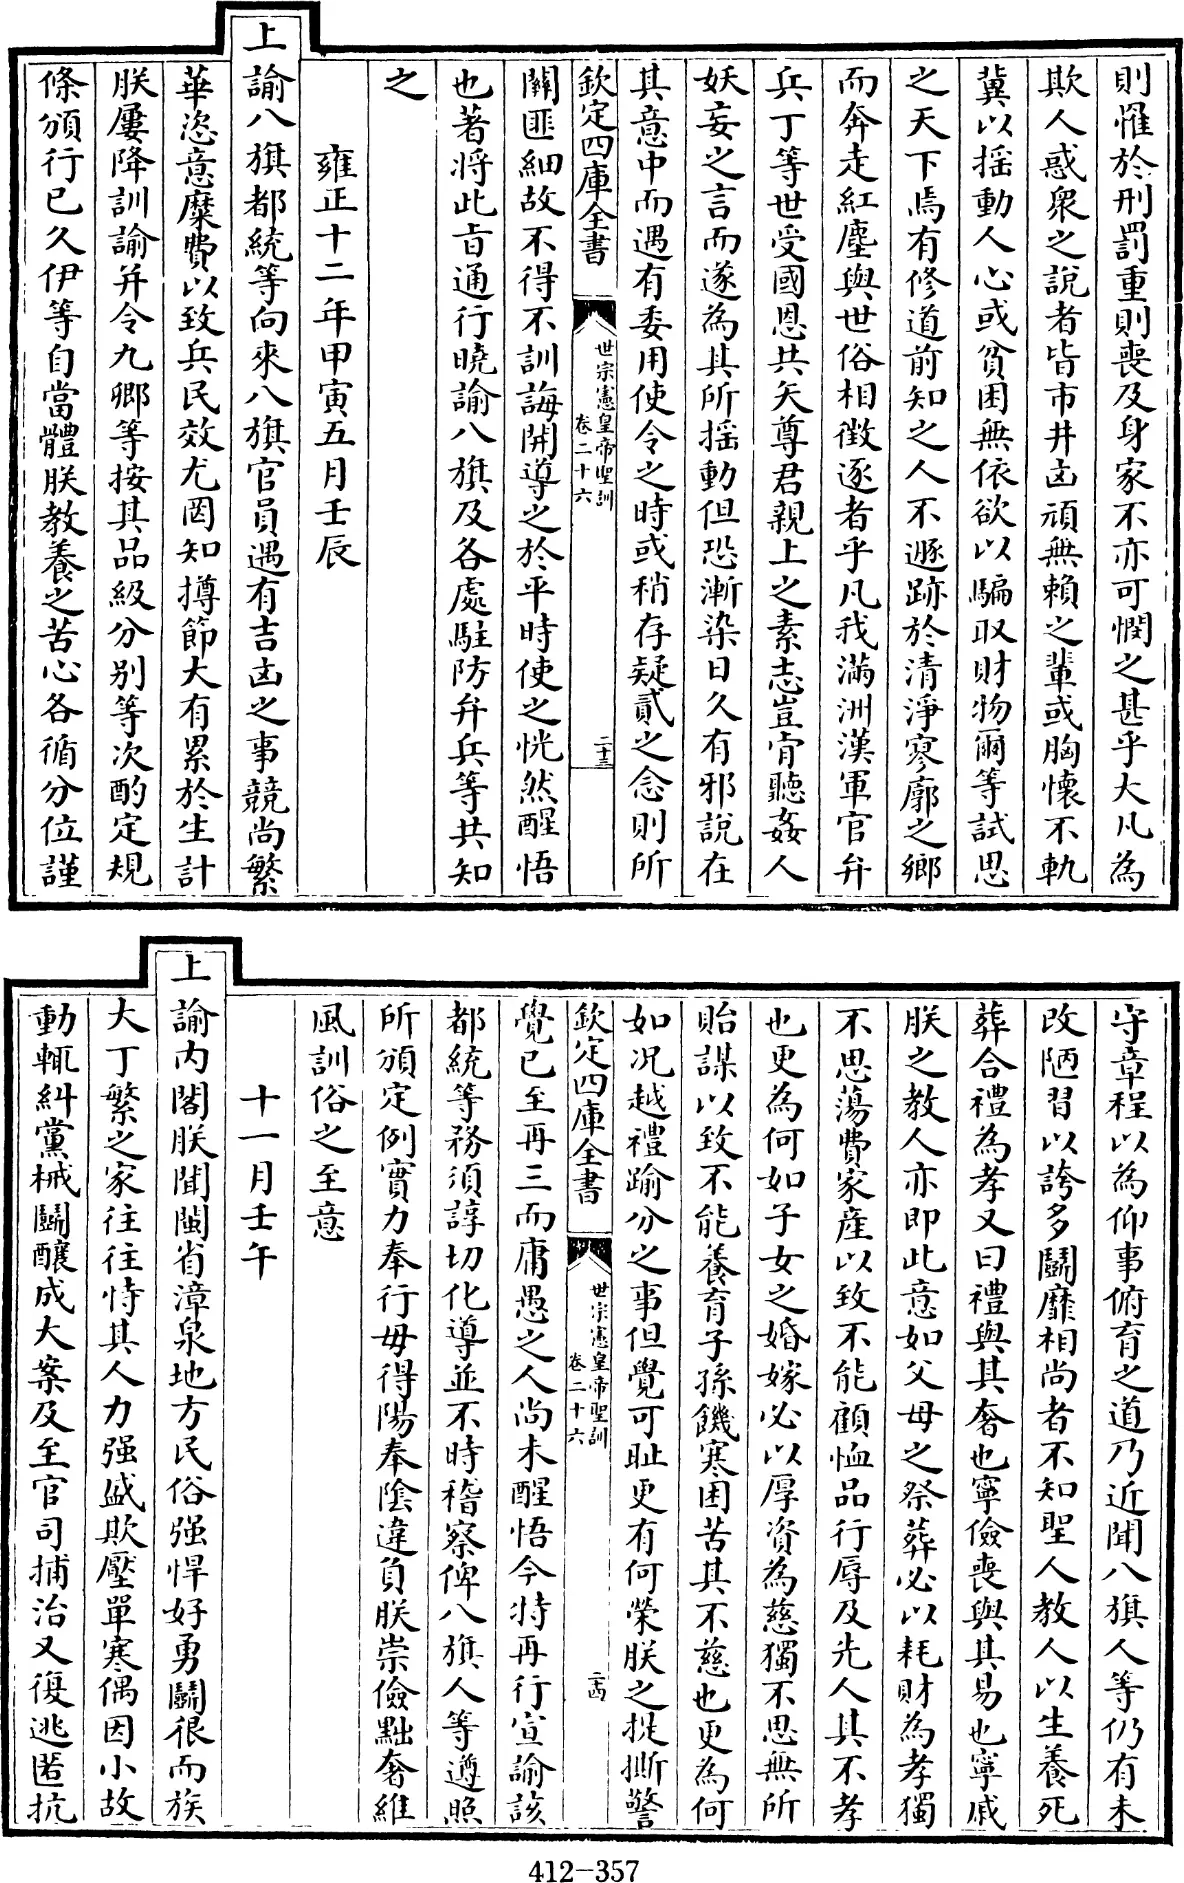 則惟於刑罰重則喪及身家不亦可憫之甚乎大凡為
欺人惑衆之說者皆市井凶頑無賴之輩或胸懷不軌
冀以揺動人心或貧困無依欲以騙取財物爾等試思
之天下焉有修道前知之人不遯跡於清淨寥廓之鄉
而奔走紅塵與世俗相徵逐者乎凡我滿洲漢軍官弁
兵丁等世受國恩共矢尊君親上之素志豈肯聽姦人
妖妄之言而遂為其所揺動但恐漸染日久有邪說在
其意中而遇有委用使令之時或稍存疑貳之念則所
欽定四庫全書
世宗憲皇帝聖訓
卷二十六
二十三
關匪細故不得不訓誨開導之於平時使之恍然醒悟
也著將此旨通行曉諭八旗及各處駐防弁兵等共知
之
雍正十二年甲寅五月壬辰
上諭八旗都統等向來八旗官員遇有吉凶之事競尚繁
華恣意糜費以致兵民效尤罔知撙節大有累於生計
朕屢降訓諭并令九卿等按其品級分别等次酌定規
條頒行已久伊等自當體朕教養之苦心各循分位謹
守章程以為仰事俯育之道乃近聞八旗人等仍有未
改陋習以誇多鬭靡相尚者不知聖人教人以生養死
葬合禮為孝又曰禮與其奢也寧儉喪與其易也寧戚
朕之教人亦即此意如父母之祭葬必以耗財為孝獨
不思蕩費家産以致不能顧恤品行辱及先人其不孝
也更為何如子女之婚嫁必以厚資為慈獨不思無所
貽謀以致不能養育子孫饑寒困苦其不慈也更為何
如况越禮踰分之事但覺可恥更有何榮朕之提撕警
欽定四庫全書
世宗憲皇帝聖訓
卷二十六
二十四
覺已至再三而庸愚之人尚未醒悟今特再行宣諭該
都統等務須諄切化導並不時稽察俾八旗人等遵照
所頒定例實力奉行毋得陽奉陰違負朕崇儉黜奢維
風訓俗之至意
十一月壬午
上諭内閣朕聞閩省漳泉地方民俗强悍好勇鬭很而族
大丁繁之家往往恃其人力强盛欺壓單寒偶因小故
動輒糾黨械鬭釀成大案及至官司捕治又復逃匿抗
412-357